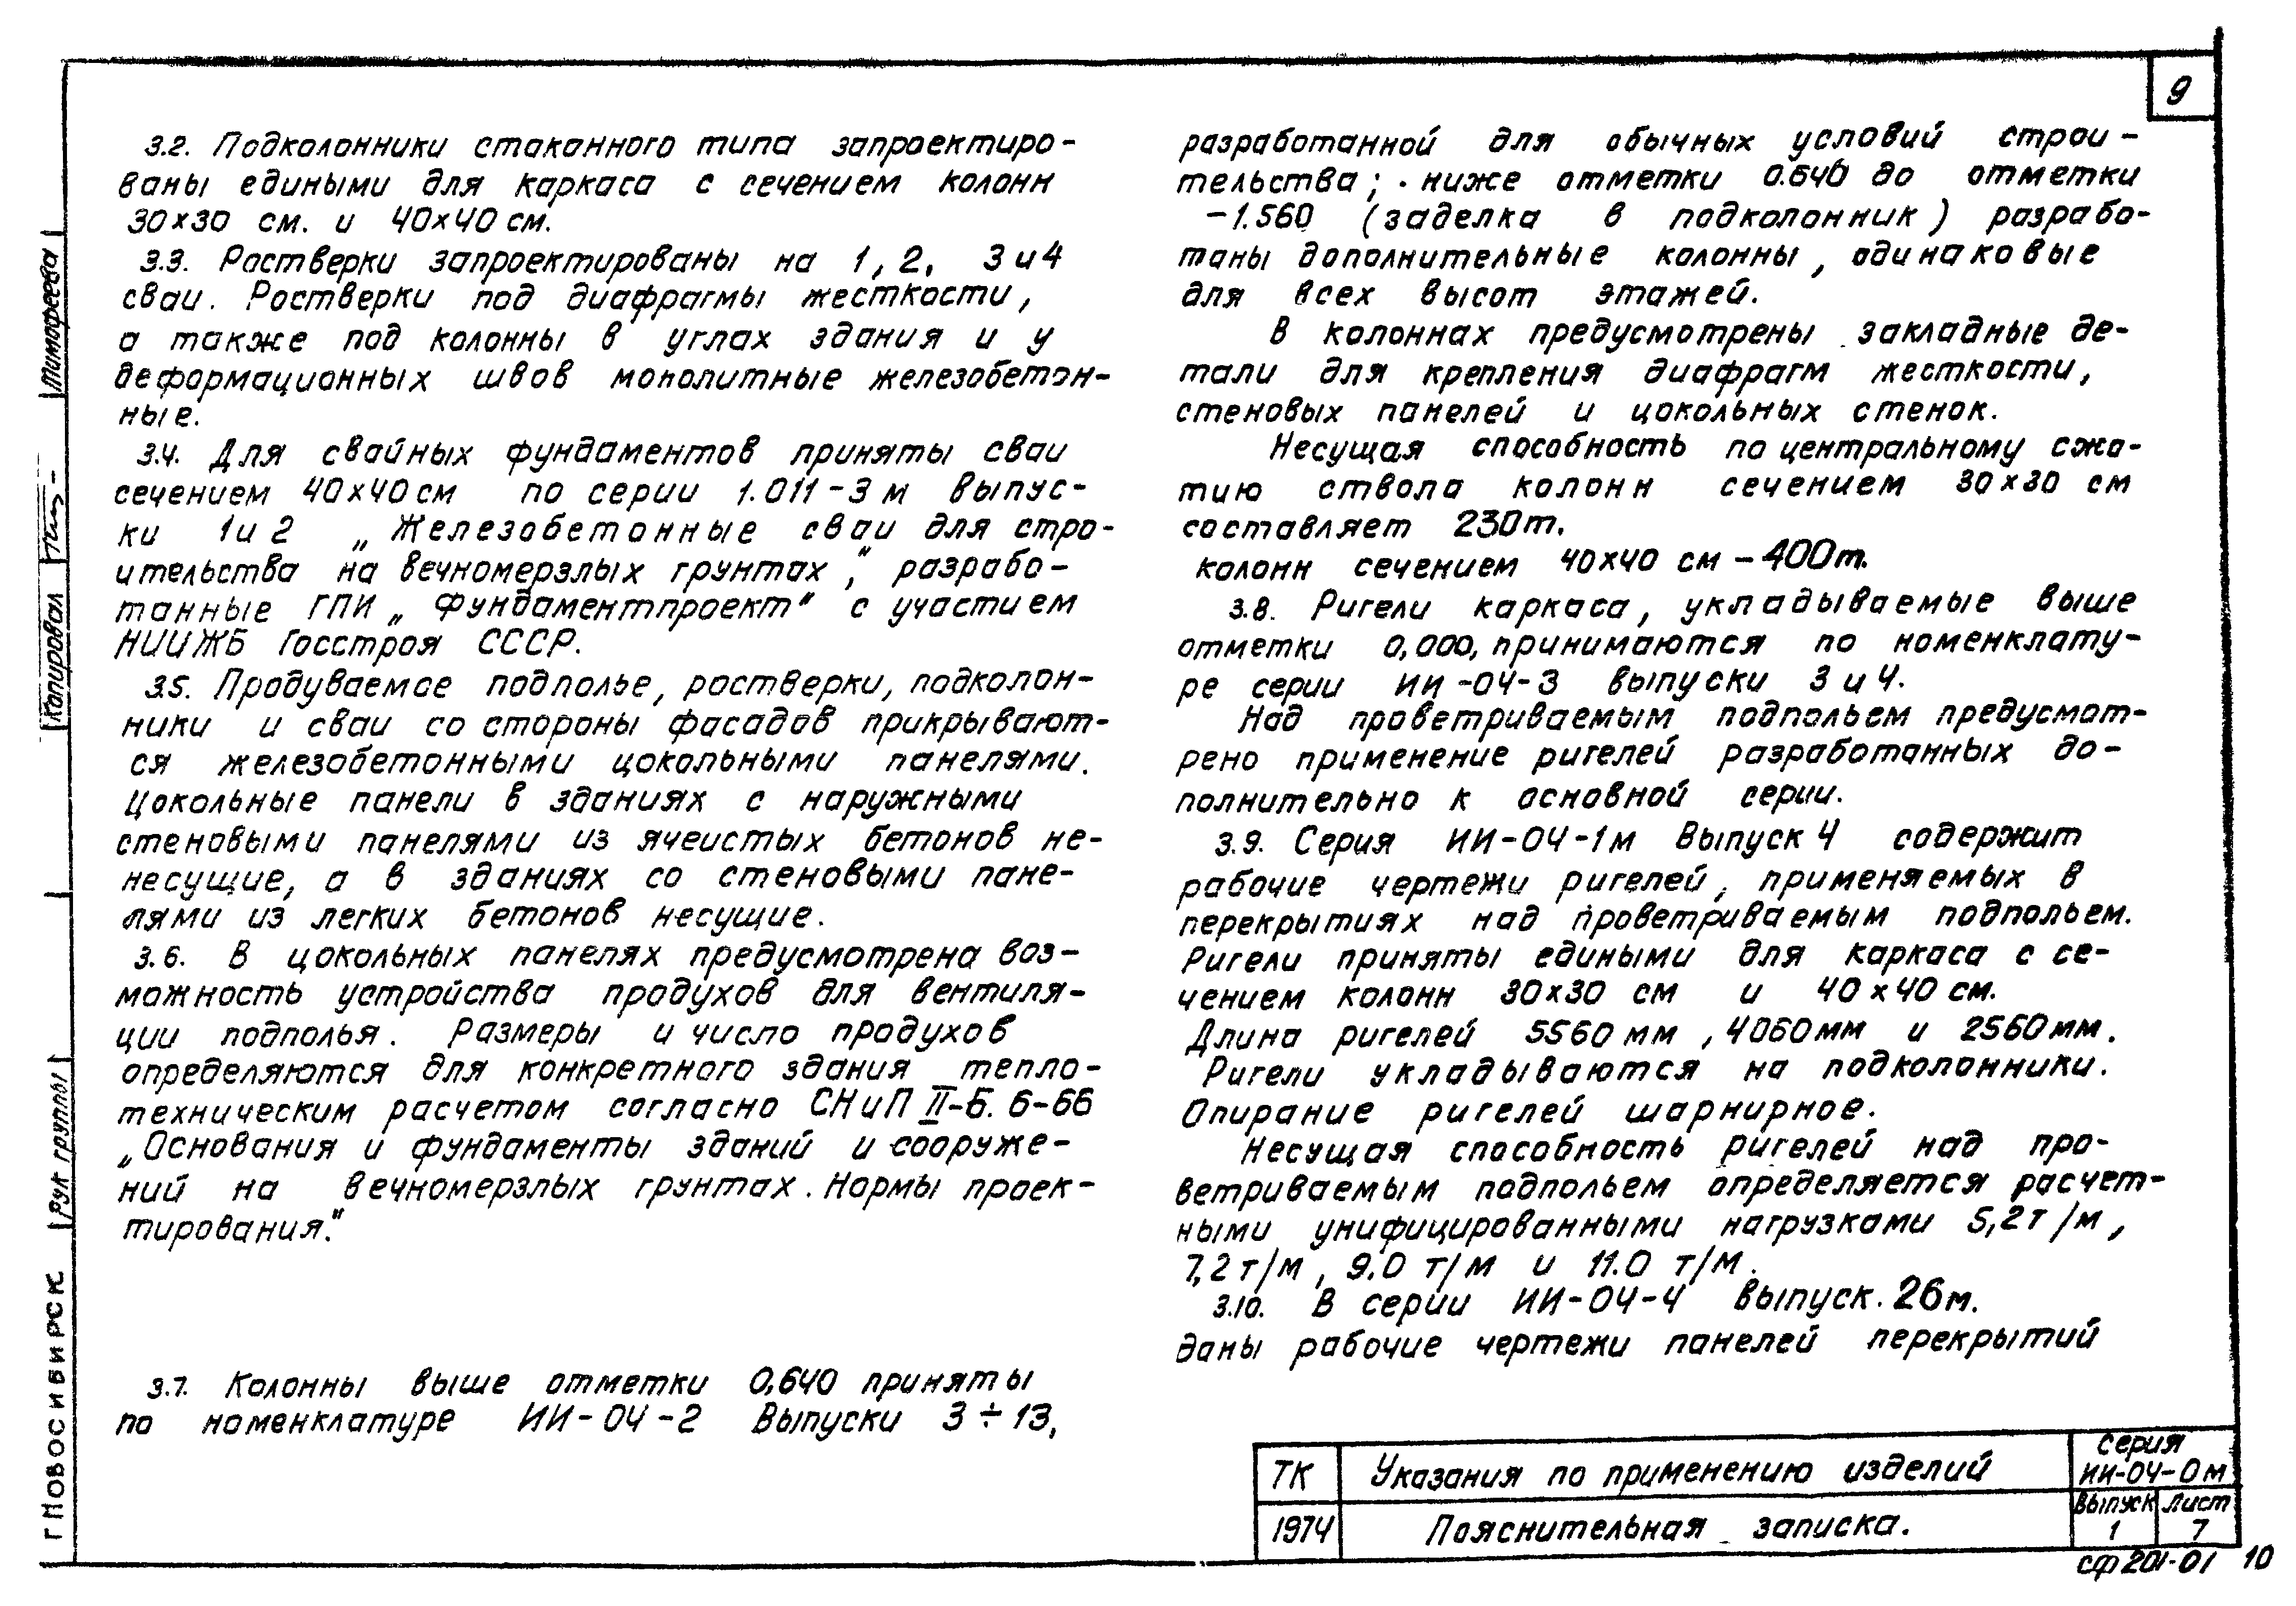 9
3.2. Подколонники стаканного типа запроектиро-
ваны едиными для каркаса с сечением колонн
30х30 см. и 40х40 см.
3.3. Ростверки запроектированы на 1, 2, 3 и 4
сваи. Ростверки под диафрагмы жесткости,
а также под колонны в углах здания и у
деформационных швов монолитные железобетон-
ные.
3.4. Для свайных фундаментов приняты сваи
сечением 40х40 см по серии 1.011-3м выпус-
ки 1 и 2 „Железобетонные сваи для стро-
ительства на вечномерзлых грунтах", разрабо-
танные ГПИ „Фундаментпроект" с участием
НИИЖБ Госстроя СССР.
3.5. Продуваемое подполье, ростверки, подколон-
ники и сваи со стороны фасадов прикрывают-
ся железобетонными цокольными панелями.
Цокольные панели в зданиях с наружными
стеновыми панелями из ячеистых бетонов не-
несущие, а в зданиях со стеновыми пане-
лями из легких бетонов несущие.
3.6. В цокольных панелях предусмотрена воз-
можность устройства продухов для вентиля-
ции подполья. Размеры и число продухов
определяются для конкретного здания тепло-
техническим расчетом согласно СНиП II-Б. 6-66
„Основания и фундаменты зданий и сооруже-
ний на вечномерзлых грунтах. Нормы проек-
тирования."
3.7. Колонны выше отметки 0,640 приняты
по номенклатуре ИИ-04-2 Выпуски 3÷13,
разработанной для обычных условий строи-
тельства; ниже отметки 0.640 до отметки
-1.560 (заделка в подколонник) разрабо-
таны дополнительные колонны, одинаковые
для всех высот этажей.
В колоннах предусмотрены закладные де-
тали для крепления диафрагм жесткости,
стеновых панелей и цокольных стенок.
Несущая способность по центральному сжа-
тию ствола колонн сечением 30х30 см
составляет 230т.
колонн сечением 40х40 см - 400т.
3.8. Ригели каркаса, укладываемые выше
отметки 0,000, принимаются по номенклату-
ре серии ИИ-04-3 выпуски 3 и 4.
Над проветриваемым подпольем предусмот-
рено применение ригелей разработанных до-
полнительно к основной серии.
3.9. Серия ИИ-04-1м Выпуск 4 содержит
рабочие чертежи ригелей, применяемых в
перекрытиях над проветриваемым подпольем.
Ригели приняты едиными для каркаса с се-
чением колонн 30х30 см и 40х40 см.
Длина ригелей 5560 мм, 4060 мм и 2560 мм.
Ригели укладываются на подколонники.
Опирание ригелей шарнирное.
Несущая способность ригелей над про-
ветриваемым подпольем определяется расчет-
ными унифицированными нагрузками 5,2т/м,
7,2 т/м, 9.0 т/м и 11.0 т/м.
3.10. В серии ИИ-04-4 выпуск. 26м.
даны рабочие чертежи панелей перекрытий
ТК Указания по применению изделий серия ИИ-04-0м
1974 Пояснительная записка. Выпуск 1 Лист 7
сф 201-01 10
г Новосибирск
Рук группы
Копировал
Тимофеева